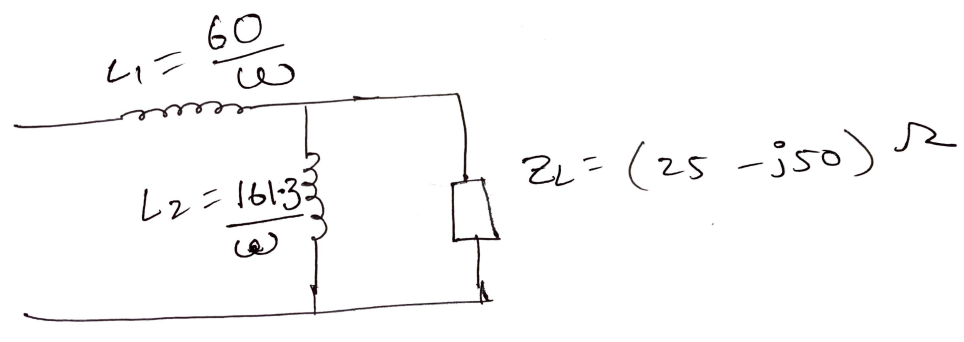 L1 = 60/ω
L2 = 161.3/ω
ZL = (25 - j50) Ω